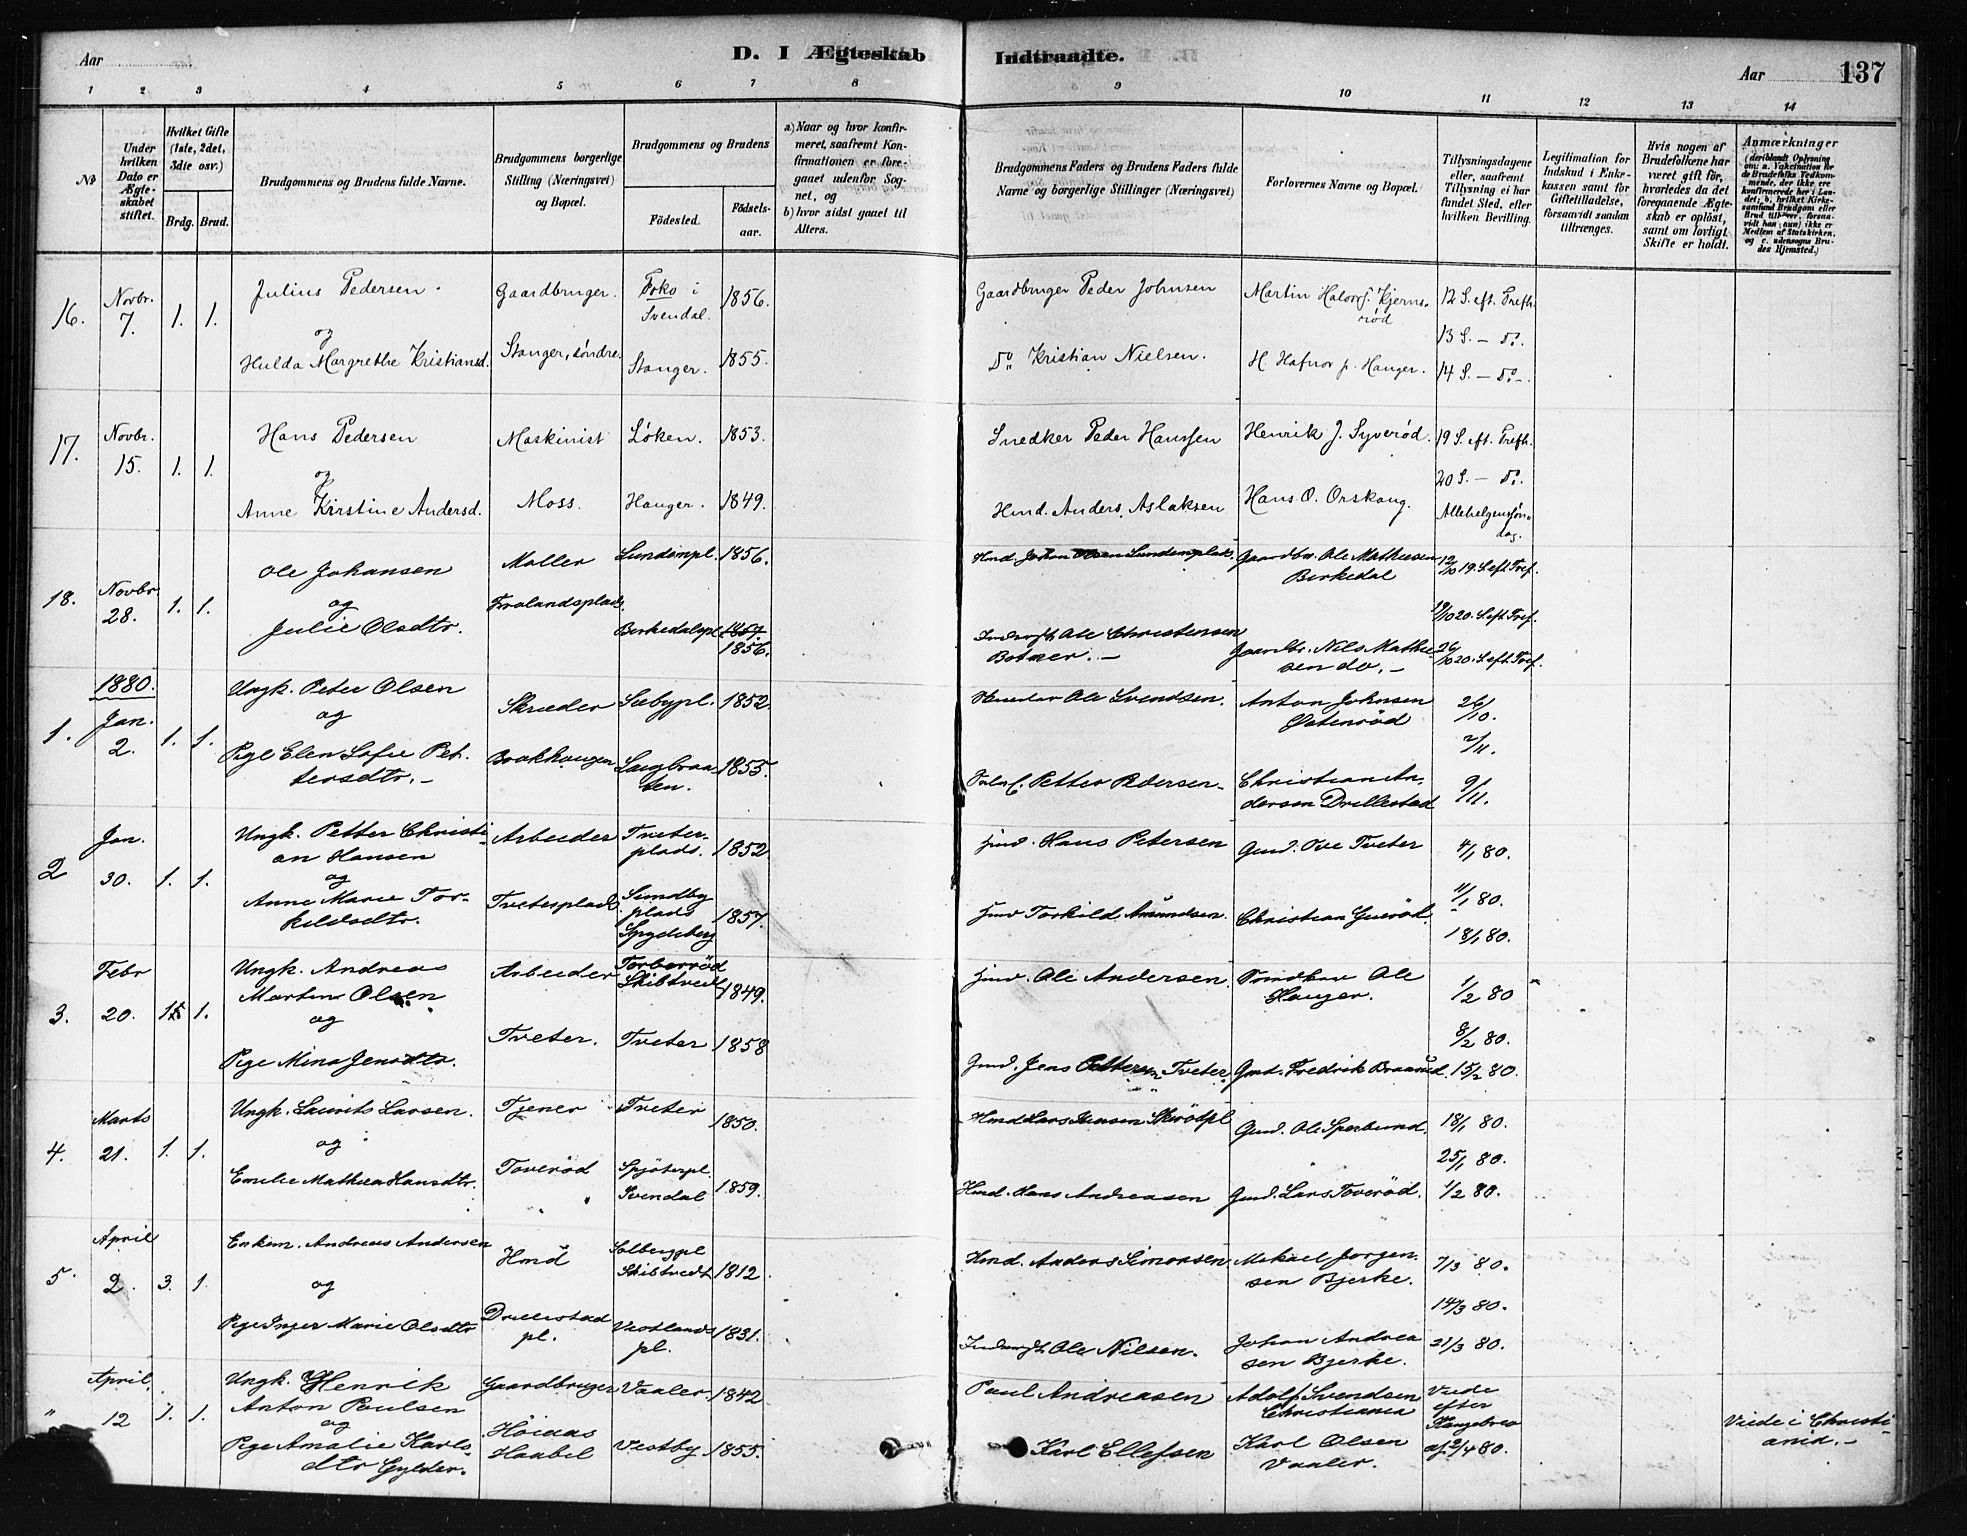 Aar
D. I Ægteskab
Indtraadte.
Aar
137
1 2 3 4 5 6 7 8 9 10 11 12 13 14
No
Under hvilken Dato er Ægteskabet stiftet.
Hvilket Gifte (1ste, 2det, 3die osv.)
Brdg. Brud.
Brudgommens og Brudens fulde Navne.
Brudgommens borgerlige Stilling (Næringsvei) og Bopæl.
Brudgommens og Brudens
Fødested.
Fødsels-aar.
a) Naar og hvor konfirmeret, saafremt Konfirmationen er foregaaet udenfor Sognet, og
b) hvor sidst gaaet til Alters.
Brudgommens Faders og Brudens Faders fulde Navne og borgerlige Stillinger (Næringsvei)
Forlovernes Navne og Bopæl.
Tillysningsdagene eller, saafremt Tillysning ei har fundet Sted, efter hvilken Bevilling.
Legitimation for Indskud i Enkekassen samt for Giftetilladelse, forsaavidt saadan tiltrænges.
Hvis nogen af Brudefolkene har været gift før, hvorledes da det foregaaende Ægteskab er opløst, samt om lovligt Skifte er holdt.
Anmærkninger
16. Novbr. 7. 1. 1.
Julius Pedersen
og
Hulda Margrethe Kristiansd.
Gaardbruger.
Stanger, søndre.
Foks i Svendal. 1856.
Stanger. 1855.
Gaardbruger Peder Johnsen
Do Kristian Nielsen.
H. Hafnor p. Hauger.
12 S. eft. Trefh.
13 S. — do.
14 S. — do.
17. Novbr. 15. 1. 1.
Hans Pedersen
og
Anne Kirstine Andersd.
Maskinist
Moss.
Løken. 1853.
Hauger. 1849.
Snedker Peder Hanssen
Hmd. Anders Aslaksen
Henrik J. Syverød.
Hans O. Orskaug.
19 S. eft. Trefh.
20 S. — do.
Allehelgenssøndag.
18. Novbr 28. 1. 1.
Ole Johansen
og
Julie Olsdtr.
Møller
Frolandsplads.
Lundempl. 1856.
Birkedalspl 1857.
1856.
Gaardbr. Ole Mathiesen
Birkedal
Ole Christensen
Botner. —
Gaardbr. Nils Mathiesen do. —
12/10 19. S. eft Tref.
19/10 20. S. eft Tref.
26/10 20. S. eft Tref.
1880.
1. Jan. 2. 1. 1.
Ungk. Peter Olsen
og
Pige Elen Sofie Pettersdtr. —
Skræder
Brakhaugen
Sæbypl. 1852.
Langbraaten. 1855.
Ole Svendsen.
Petter Pedersen
Anton Johnsen
Østenrød
Christian Andersen Drillestad
26/10.
2/11.
9/11.
2 Jan. 30. 1. 1.
Ungk. Petter Christian Hansen
og
Anne Marie Torkildsdtr.
Arbeider
Tveterplads
Tveterplads. 1852
Sundby plads
Spydeberg 1857.
Hans Petersen
Torkild Amundsen.
Gmd. Ove Tveter
Christian Guerød
4/1 80.
11/1 80.
18/1 80.
3. Febr 20. 1. 1.
Ungk. Andreas
Martin Olsen
og
Pige Mina Jensdtr.
Arbeider
Tveter.
Torborrød
Skibtvedt 1849.
Tveter 1858
Ole Andersen
Gmd. Jens Pettersen Tveter
Ole Hauger.
Gmd. Fredrik Braarud
1/2 80
8/2 80.
15/2 80.
4. Marts 21. 1. 1.
Ungk. Laurits Larsen.
og
Emilie Mathea Hansdtr
Tjener
Toverød
Tveter 1850.
Spjøterpl.
Svendal 1859.
Hmd Lars Hansen
Hmd. Hans Andreasen
Gmd. Ole Sperbund.
Gmd. Lars Toverød.
18/1 80.
25/1 80.
1/2 80.
5. April 2. 3. 1.
Enkem. Andreas Andersen
og
Pige Inger Marie Olsdtr
Hmd
Drillestad pl.
Solbergpl
Skibtvedt 1812.
Vestlands pl. 1831.
Hmd. Anders Simonsen
Ole Nilsen.
Mikael Jørgensen Bjerke.
Johan Andreasen Bjerke.
7/3 80.
14/3 80.
21/3 80.
" April 12 1. 1.
Ungk. Henrik
Anton Paulsen
og
Pige Amalie Karlsdtr Gylder.
Gaardbruger
Høiaas
Haabøl
Vaaler. 1842
Vestby 1855.
Paul Andreasen
Karl Ellefsen
Adolf Svendsen
Christiania
Karl Olsen
Vaaler.
Viede
efter
Kongebrev
af 2/4 80.
Viede i Christiania. —